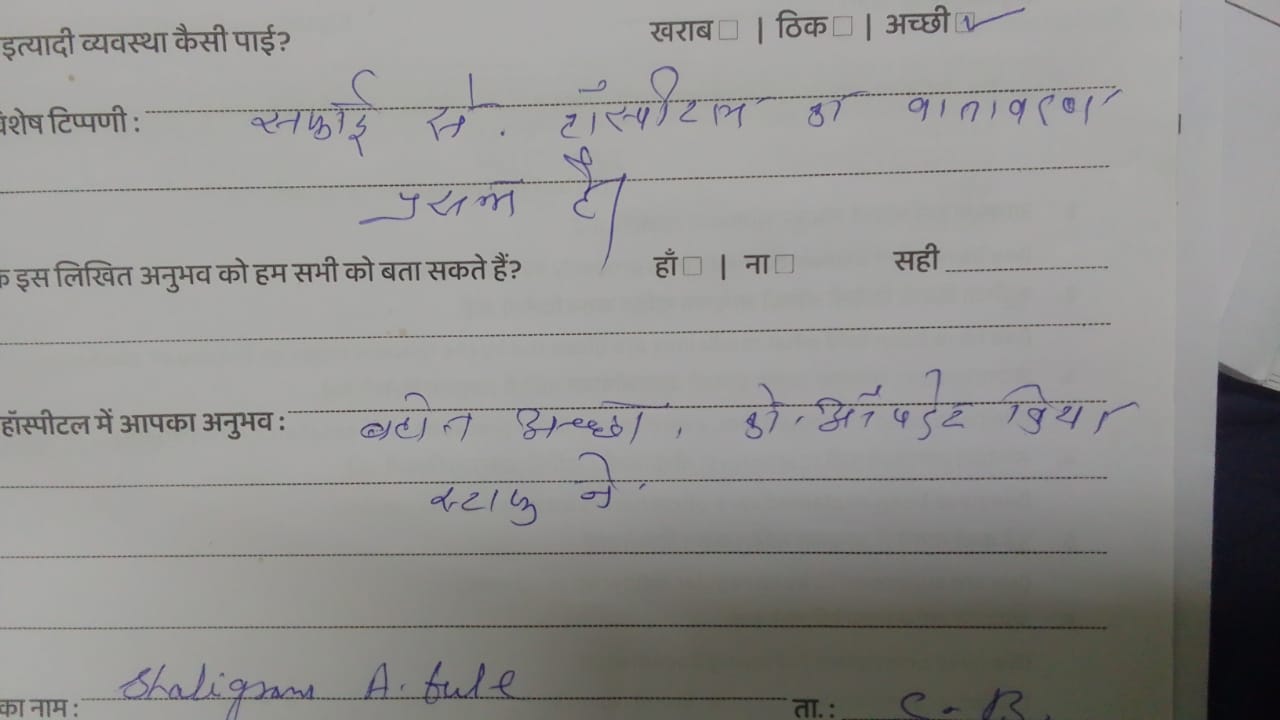 इत्यादी व्यवस्था कैसी पाई? खराब | ठिक | अच्छी
शेष टिप्पणी : सफाई से. हॉस्पीटल का वातावरण
प्रसन्न है।
इस लिखित अनुभव को हम सभी को बता सकते हैं? हाँ | ना सही
हॉस्पीटल में आपका अनुभव : बहोत अच्छा, को-ऑपरेट किया
स्टाफ ने.
का नाम : Shaligram A. fule ता.: